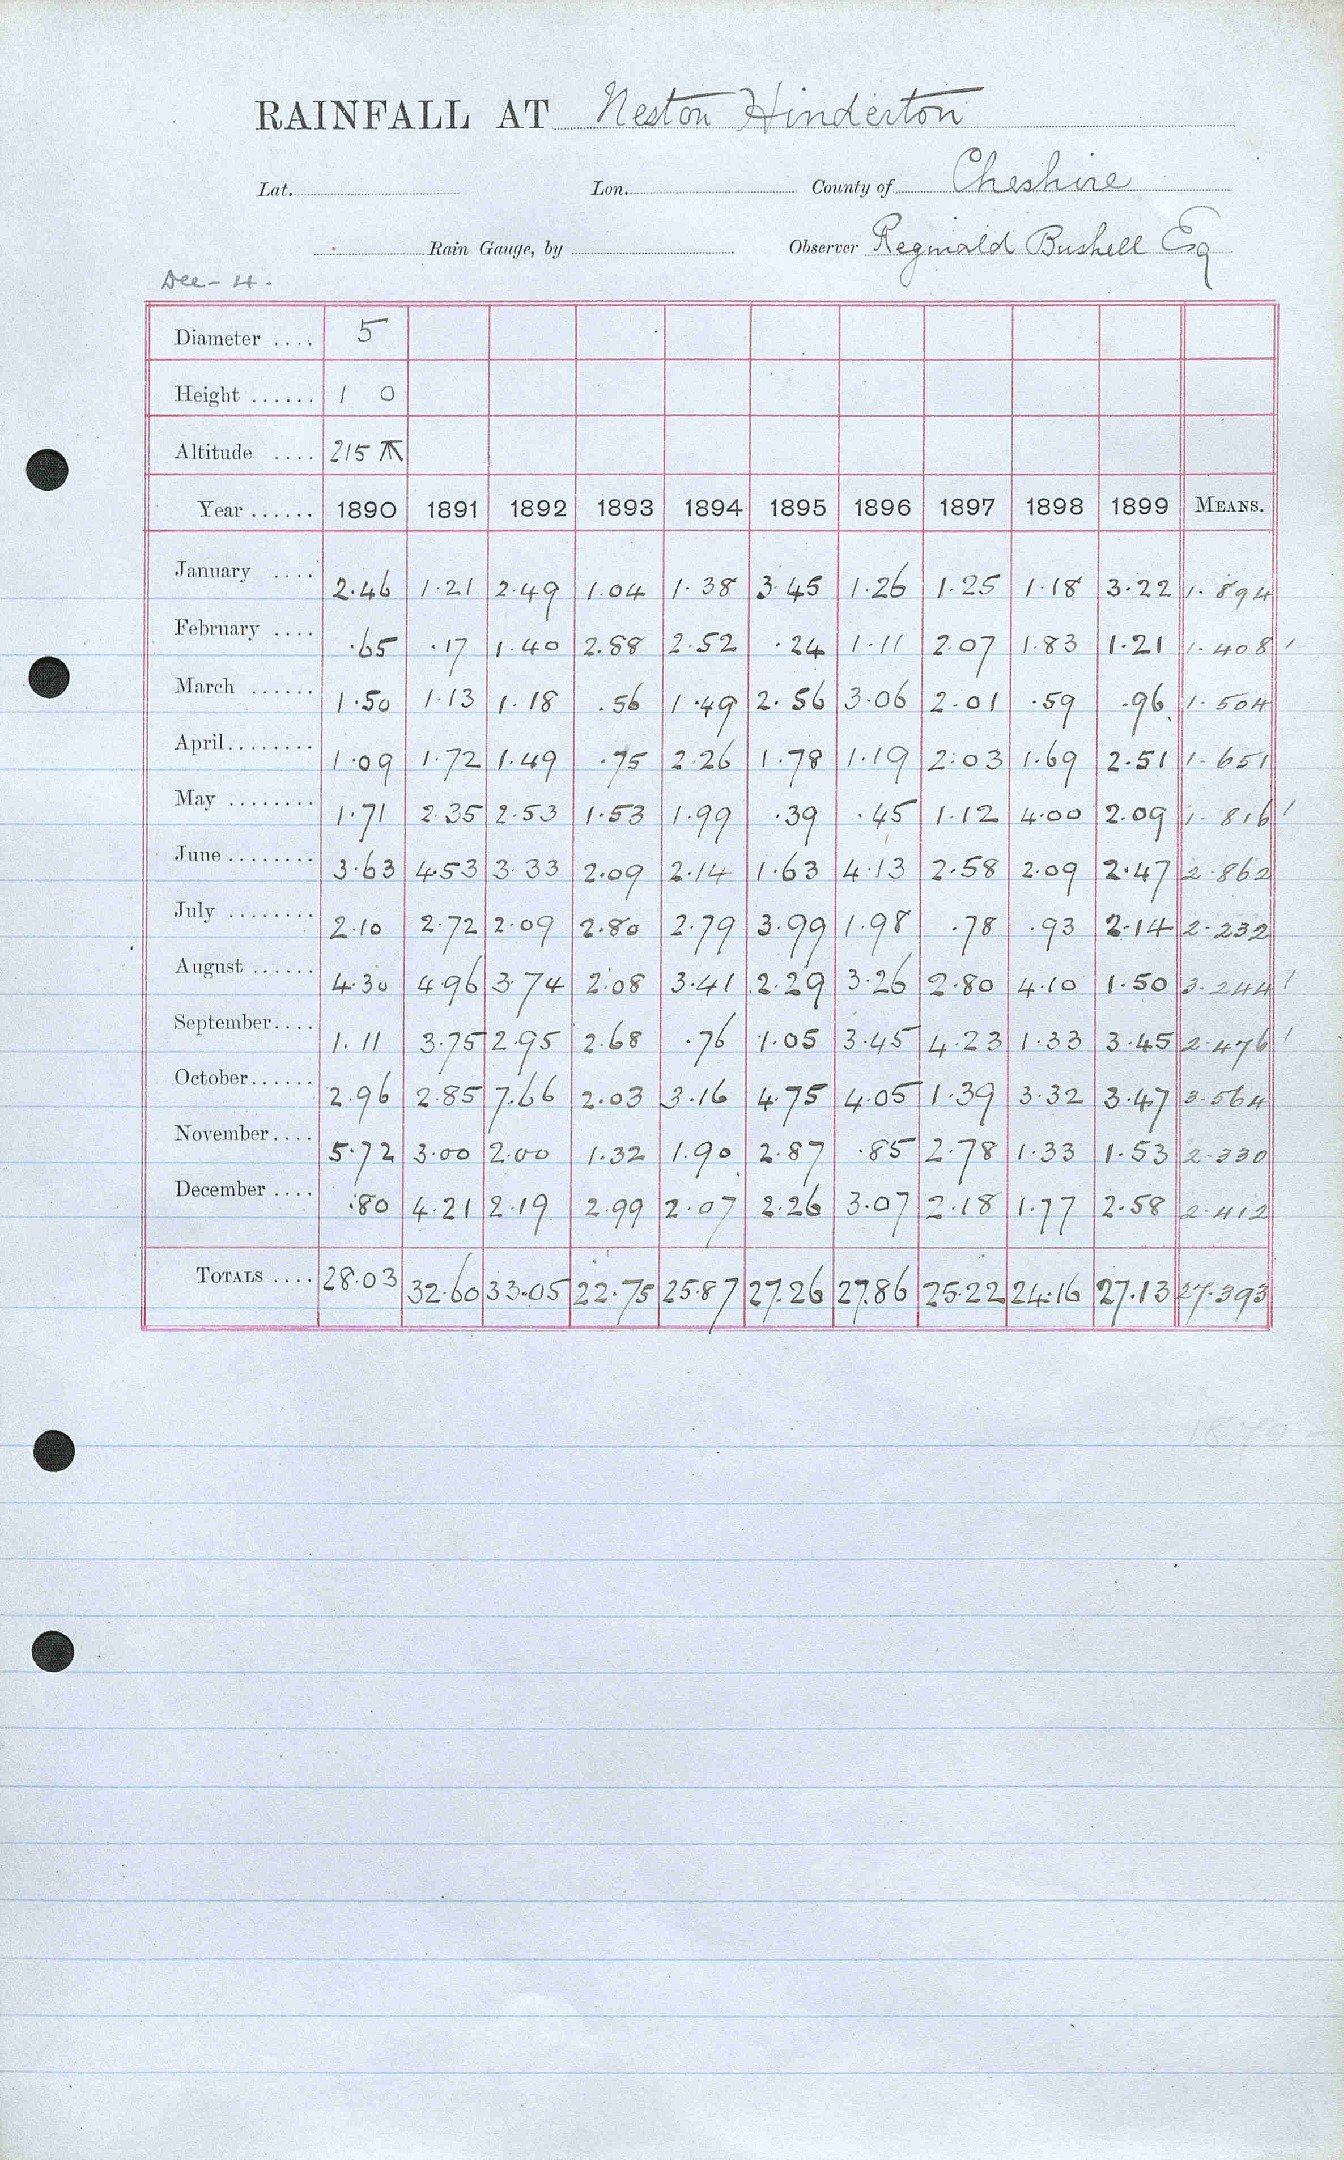 RAINFALL AT Neston Hinderton
Lat. Lon. County of Cheshire
Rain Gauge, by Observer Reginald Bushell Esq
Dee - 4.
Diameter .... 5
Height ...... 1 0
Altitude .... 215
Year ...... 1890 1891 1892 1893 1894 1895 1896 1897 1898 1899 MEANS.
January .... 2.46 1.21 2.49 1.04 1.38 3.45 1.26 1.25 1.18 3.22 1.894
February .... .65 .17 1.40 2.88 2.52 .24 1.11 2.07 1.83 1.21 1.408
March ...... 1.50 1.13 1.18 .56 1.49 2.56 3.06 2.01 .59 .96 1.504
April........ 1.09 1.72 1.49 .75 2.26 1.78 1.19 2.03 1.69 2.51 1.651
May ........ 1.71 2.35 2.53 1.53 1.99 .39 .45 1.12 4.00 2.09 1.816
June ........ 3.63 4.53 3.33 2.09 2.14 1.63 4.13 2.58 2.09 2.47 2.862
July ........ 2.10 2.72 2.09 2.80 2.79 3.99 1.98 .78 .93 2.14 2.232
August ...... 4.30 4.96 3.74 2.08 3.41 2.29 3.26 2.80 4.10 1.50 3.244
September.... 1.11 3.75 2.95 2.68 .76 1.05 3.45 4.23 1.33 3.45 2.476
October...... 2.96 2.85 7.66 2.03 3.16 4.75 4.05 1.39 3.32 3.47 3.564
November.... 5.72 3.00 2.00 1.32 1.90 2.87 .85 2.78 1.33 1.53 2.330
December .... .80 4.21 2.19 2.99 2.07 2.26 3.07 2.18 1.77 2.58 2.412
TOTALS .... 28.03 32.60 33.05 22.75 25.87 27.26 27.86 25.22 24.16 27.13 27.393